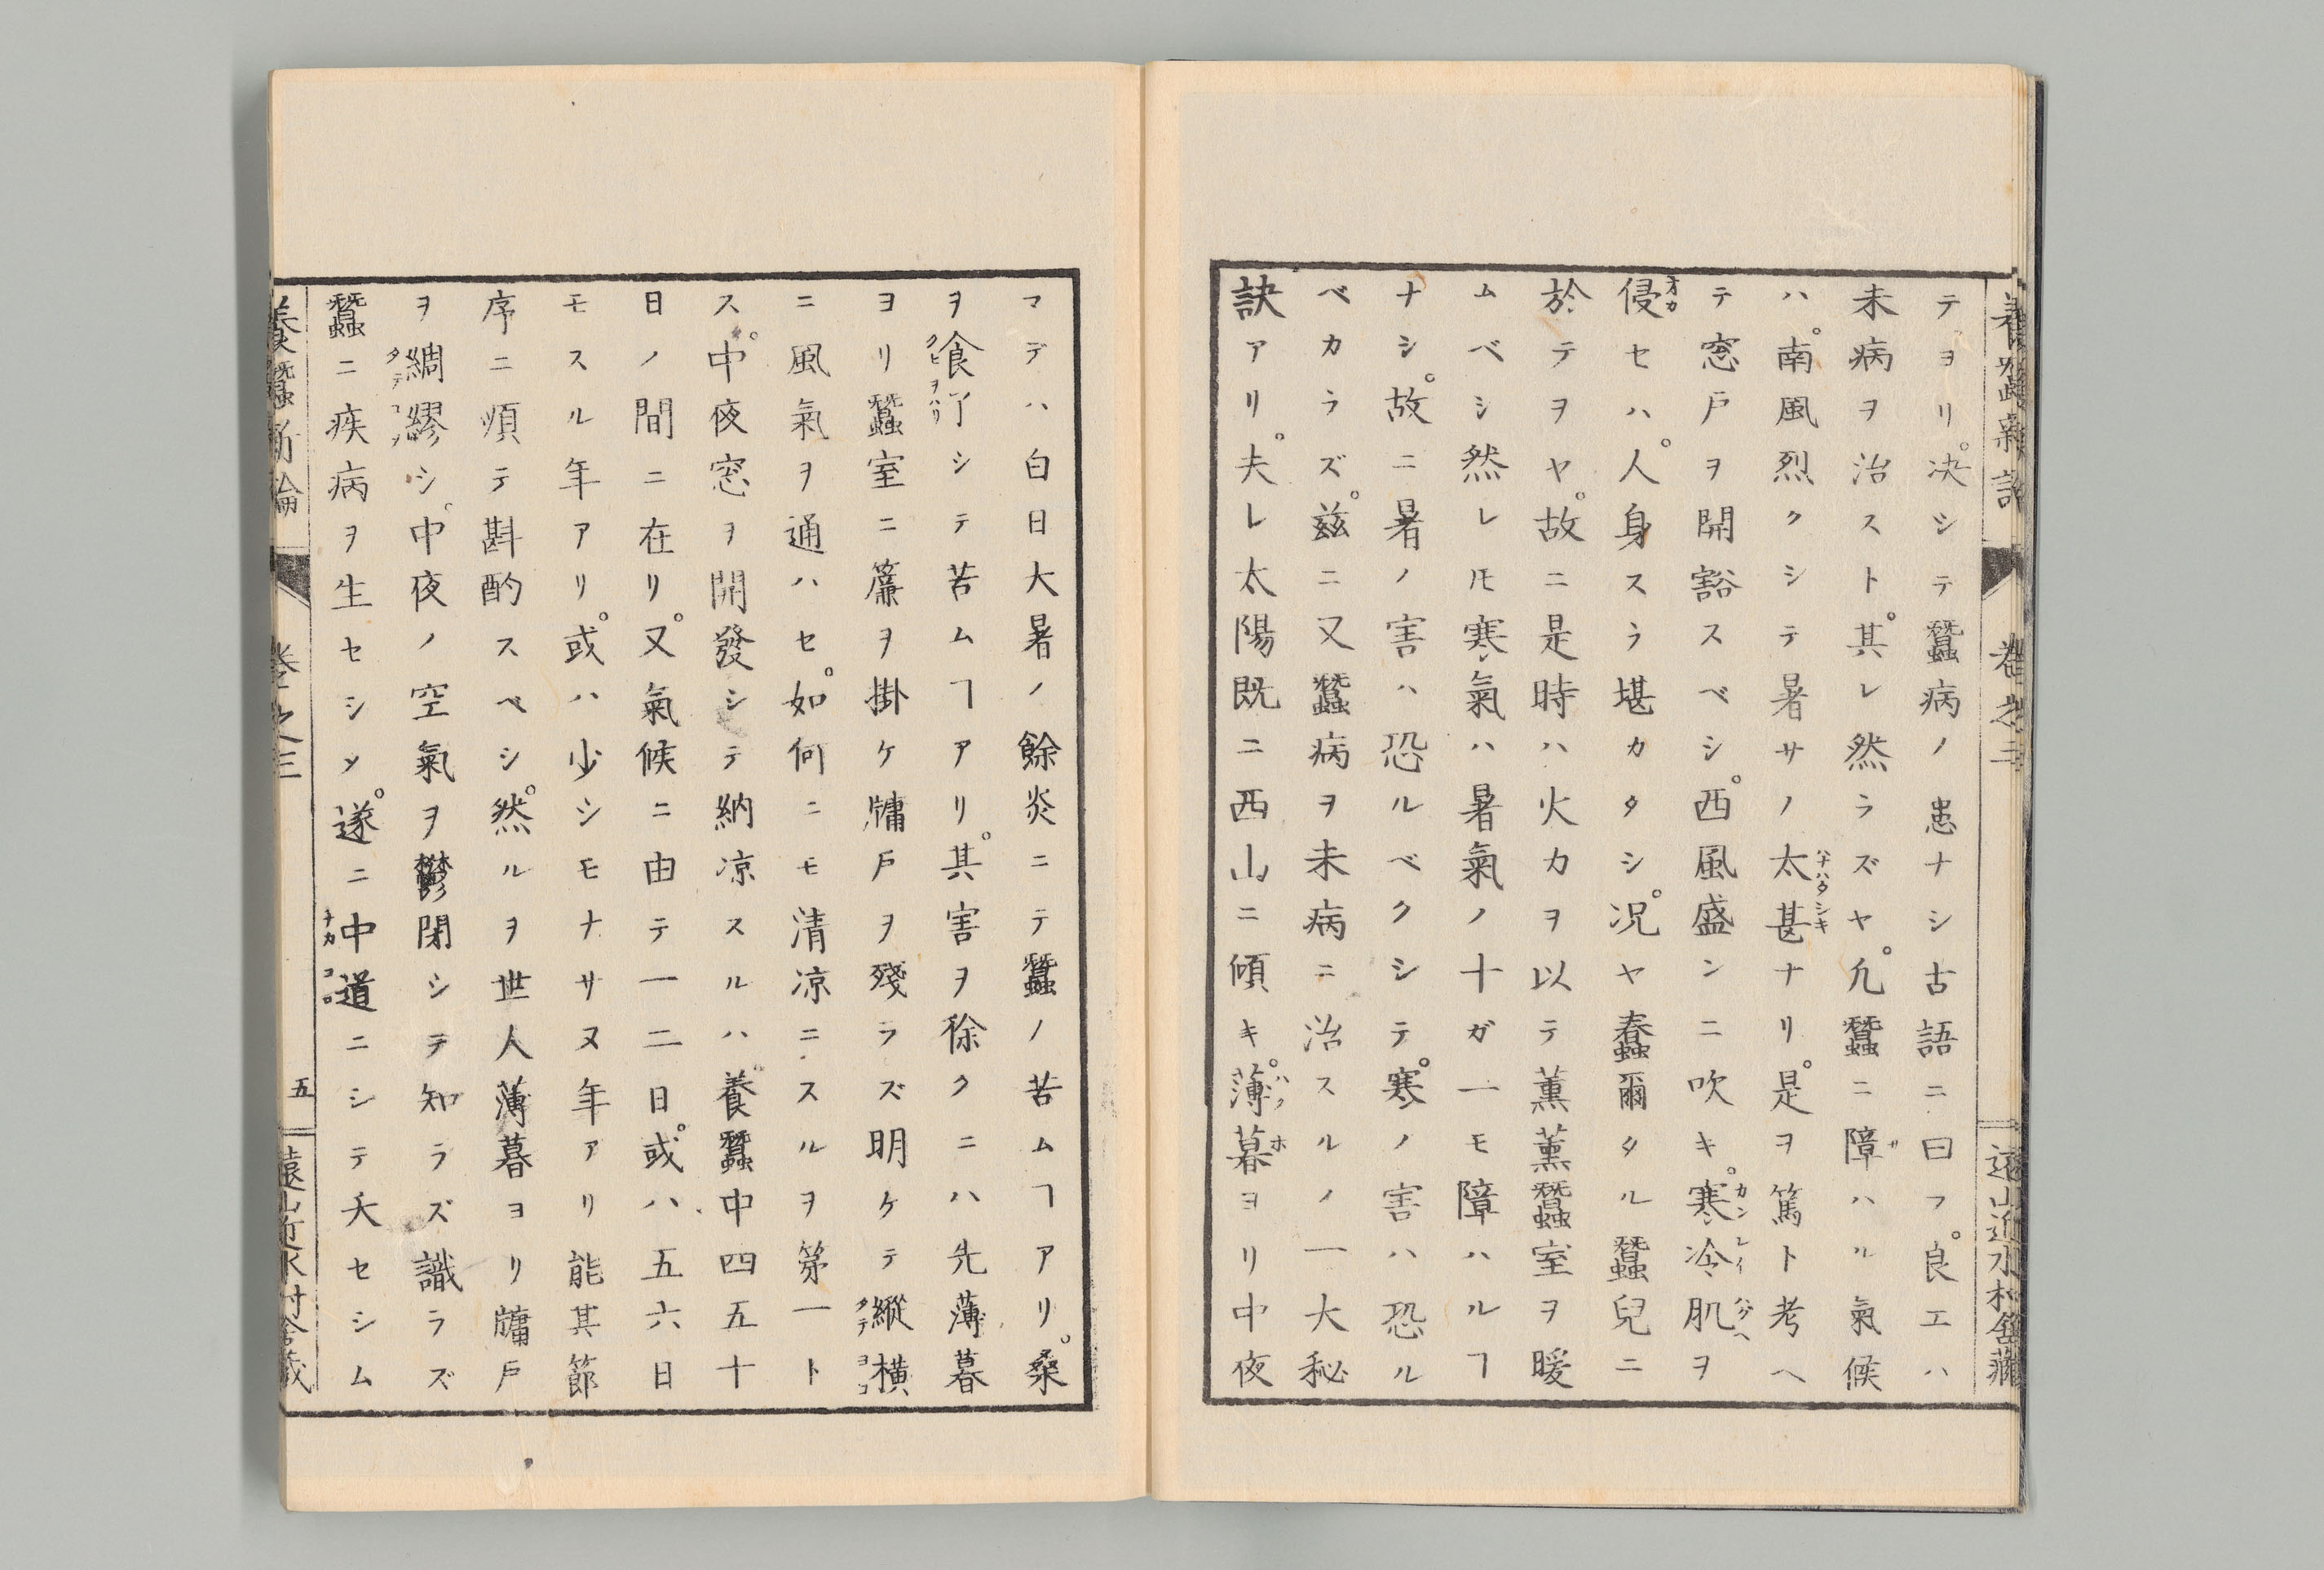 テヨリ。决シテ蠶病ノ患ナシ古語ニ曰フ。良エハ
未病ヲ治スト。其レ然ラズヤ。凢蠶ニ障ハル氣候
ハ。南風烈クシテ暑サノ太甚ナリ。是ヲ篤ト考ヘ
テ窓戸ヲ開豁スベシ。西風盛ンニ吹キ。寒冷肌ヲ
侵セハ。人身スラ堪カタシ。况ヤ蠢爾タル蠶兒ニ
於テヲヤ。故ニ是時ハ火カヲ以テ薫薫蠶室ヲ暖
ムベシ然レ𪜈寒氣ハ暑氣ノ十ガ一モ障ハルヿ
ナシ。故ニ暑ノ害ハ恐ルベクシテ。寒ノ害ハ恐ル
ベカラズ。兹ニ又蠶病ヲ未病ニ治スルノ一大秘
訣アリ。夫レ太陽既ニ西山ニ傾キ。薄暮ヨリ中夜
マデハ白日大暑ノ餘炎ニテ蠶ノ苦ムヿアリ。桑
ヲ食了シテ苦ムヿアリ。其害ヲ徐クニハ先薄暮
ヨリ蠶室ニ簾ヲ掛ケ牗戸ヲ殘ラズ明ケテ縱横
ニ風氣ヲ通ハセ。如何ニモ清凉ニスルヲ第一ト
ス。中夜窓ヲ開發シテ納凉スルハ養蠶中四五十
日ノ間ニ在リ。又氣候ニ由テ一二日。或ハ五六日
モスル年アリ。或ハ少シモナサヌ年アリ能其節
序ニ順テ斟酌スベシ。然ルヲ世人薄暮ヨリ牗戸
ヲ綢繆シ。中夜ノ空氣ヲ鬱閉シテ知ラズ識ラズ
蠶ニ疾病ヲ生セシメ。遂ニ中道ニシテ夭セシム
養蠶新論
卷之三
五
遠山近水村舍藏